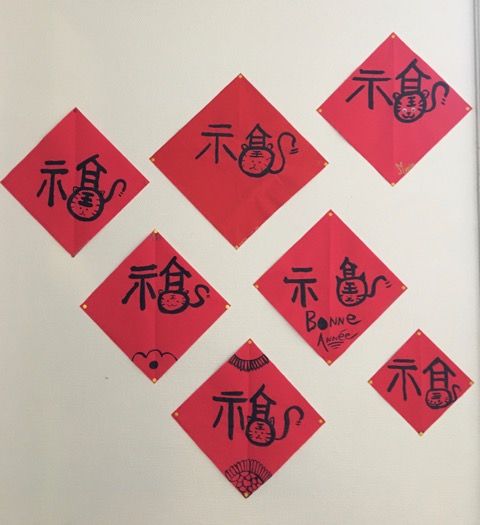 福
福
福
福
福
BONNE
ANNÉE
福
福